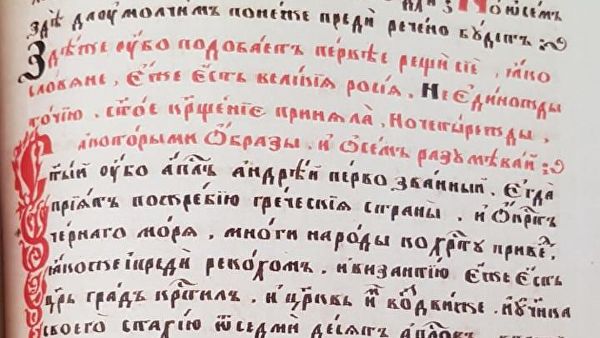 ѿ семъ
здѣ да ѹмолчимъ понеже преди речено будетъ :
Здѣже ѹбо подобаетъ первѣе рещи сїе, ꙗко
словяне, еже есть великїя росїя, Не единожды
точїю, ст҃ое крщ҃енїе принялà, Но четырежды,
и которыми ѻбразы, и ѡ семъ разумѣвай :
Ст҃ый ѹбо ап҃лъ андрѣй первозванный, егда
прїятъ по жребїю греческїя страны, и ѻкртъ
чернаго моря, многи народы ко хрт҃у приведе,
ꙗкоже и преди рекохомъ, и византїю еже есть
цр҃ь градъ крт҃илъ, и цр҃ковь в немъ воздвиже, и ѹч҃ника
своего стахїю ѿ седми десятъ ап҃ловъ